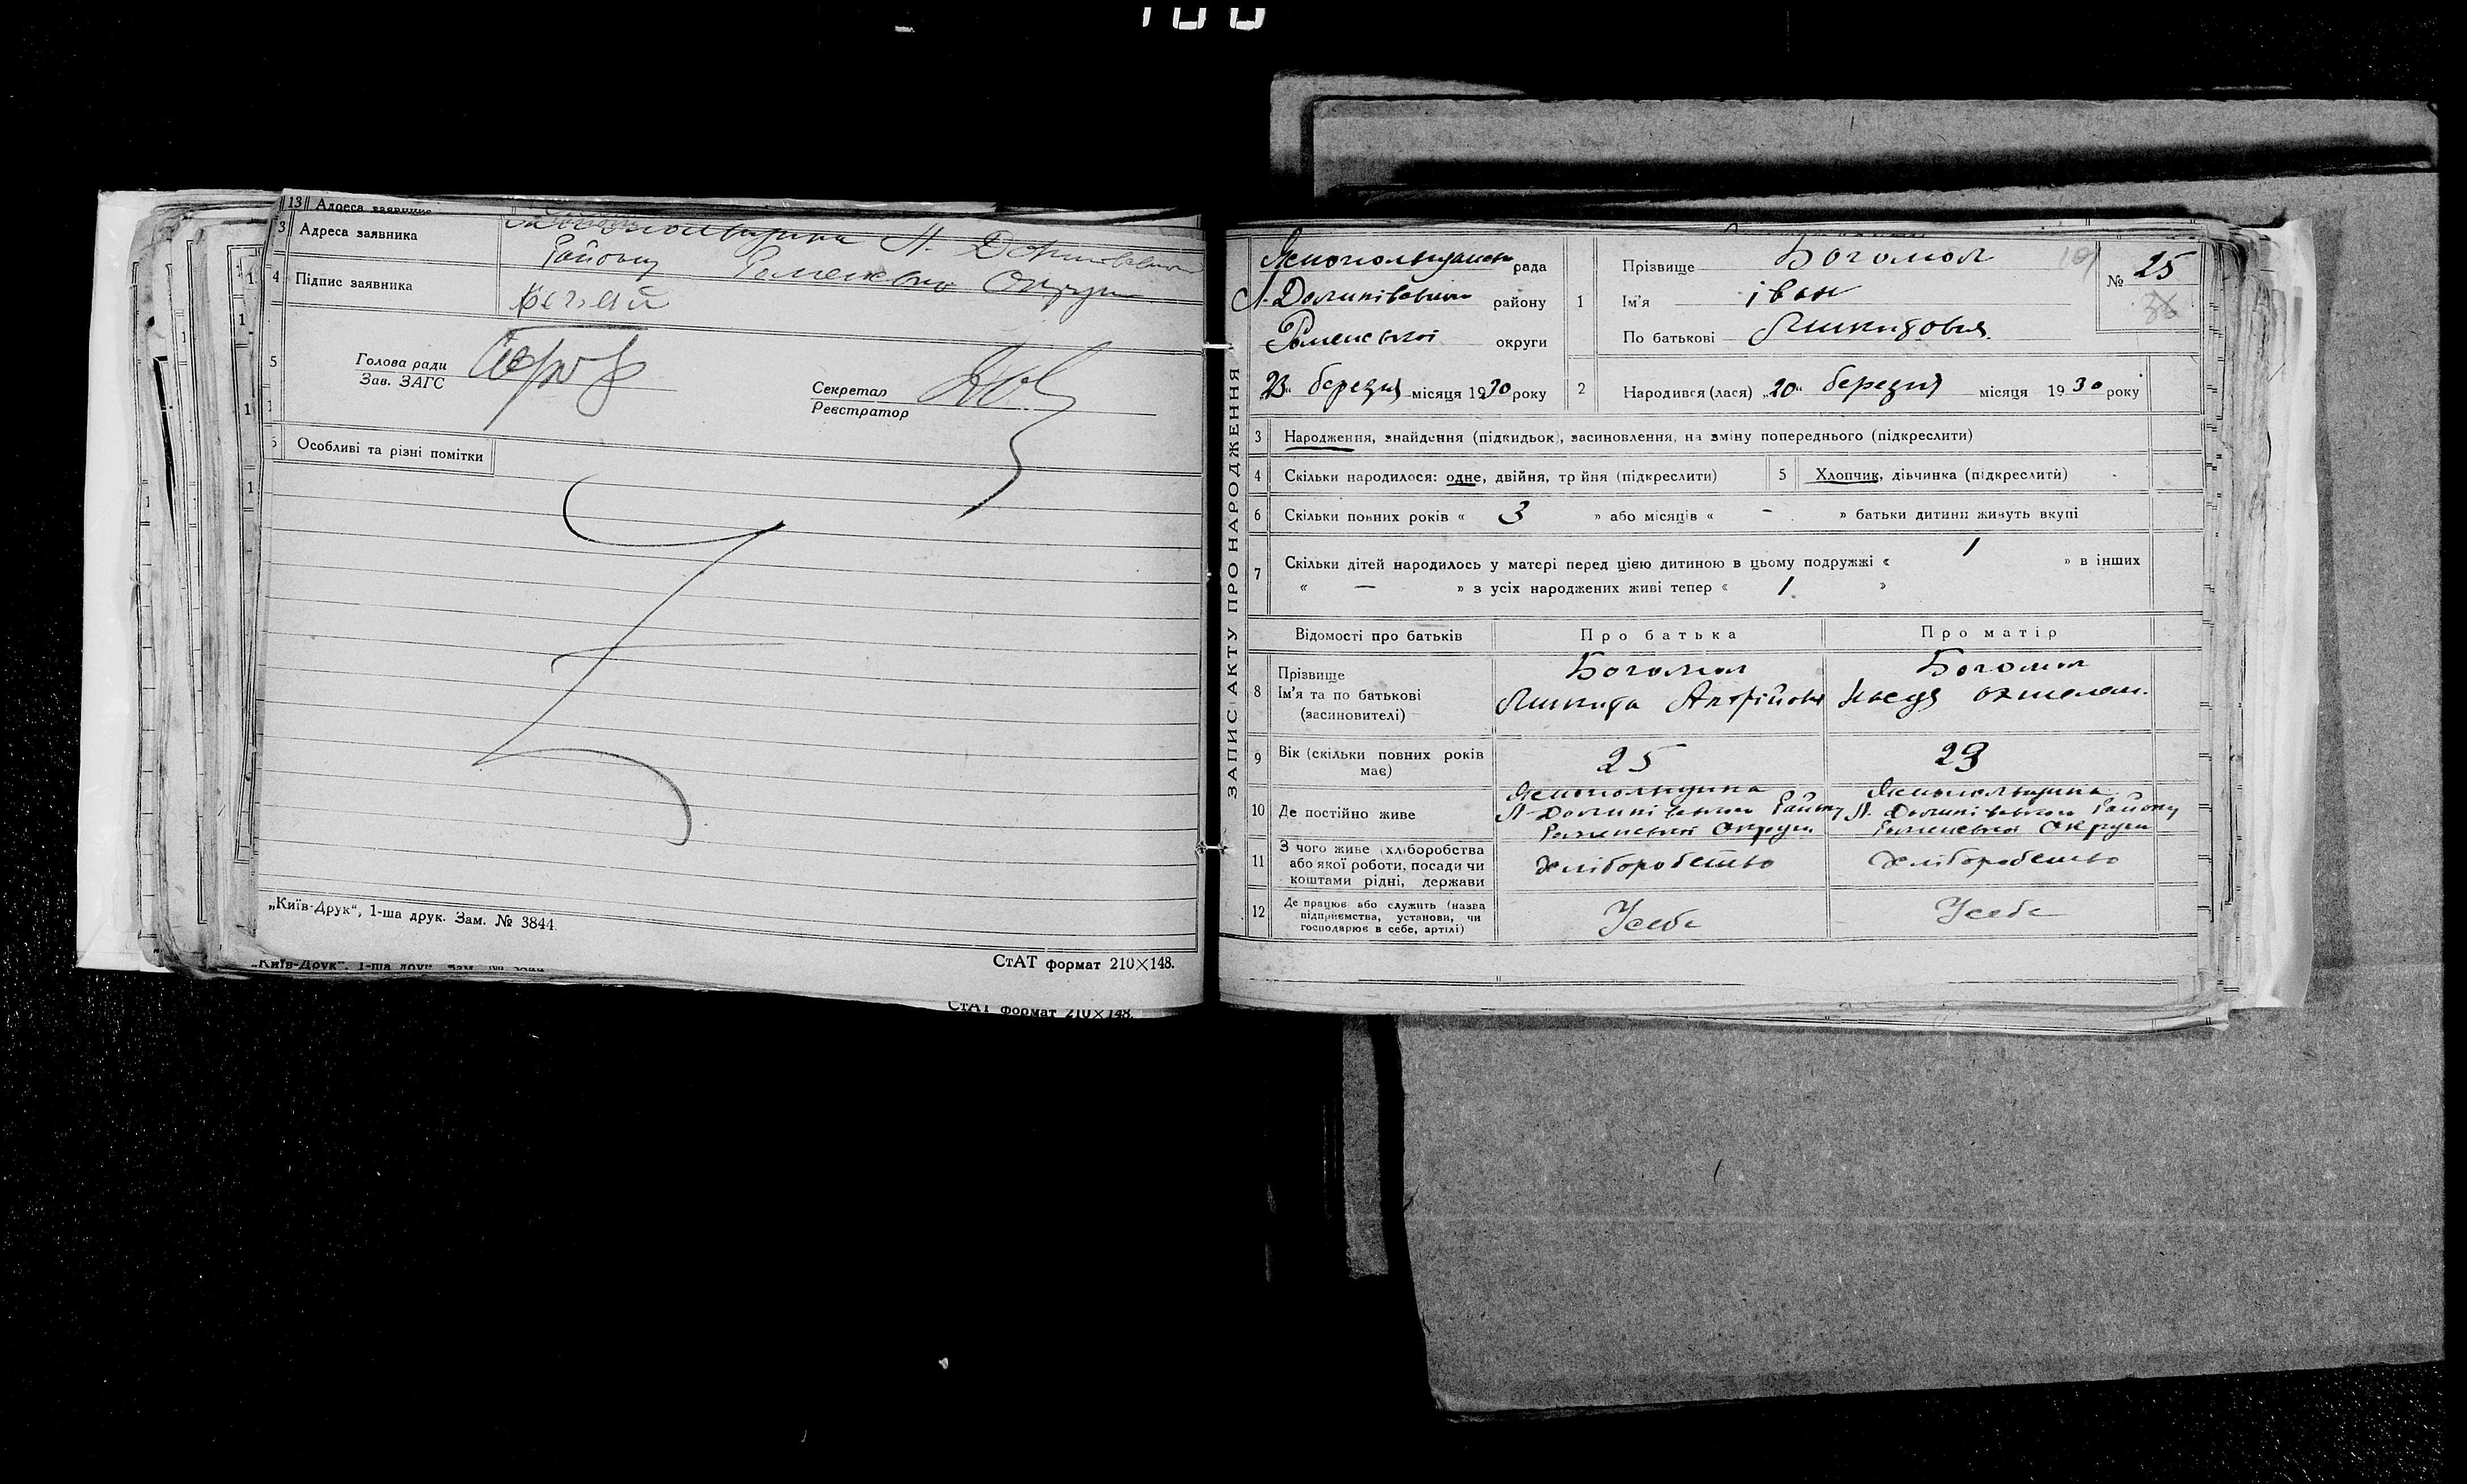 13 Адреса заявника
3 Адреса заявника
Району Роменської Округи
4 Підпис заявника
5 Голова ради
Зав. ЗАГС
Секретар
Реєстратор
Особливі та різні помітки
„Київ-Друк“, 1-ша друк. Зам. № 3844.
СтАТ формат 210×148.
„Київ-Друк“, 1-ша друк. Зам. № 3844
СтАТ формат 210×148.
ЗАПИС АКТУ ПРО НАРОДЖЕННЯ
рада
району
Роменської округи
23 березня місяця 1930 року
1 Прізвище Богомол
Ім'я Іван
По батькові Микитович
№ 25
36
2 Народився (лася) „20“ березня місяця 1930 року
3 Народження, знайдення (підкидьок), засиновлення, на зміну попереднього (підкреслити)
4 Скільки народилося: одне, двійня, трійня (підкреслити) 5 Хлопчик, дівчинка (підкреслити)
6 Скільки повних років « 3 » або місяців « - » батьки дитини живуть вкупі
7 Скільки дітей народилось у матері перед цією дитиною в цьому подружжі « 1 » в інших
« — » з усіх народжених живі тепер « 1 »
Відомості про батьків Про батька Про матір
8 Прізвище Богомол Богомол
Ім'я та по батькові Микита
(засиновителі)
9 Вік (скільки повних років 25 23
має)
10 Де постійно живе Яснопольщина Яснопольщина
Району Району
Роменської Округи Роменської Округи
11 З чого живе (хліборобства
або якої роботи, посади чи Хліборобство Хліборобство
коштами рідні, держави
12 Де працює або служить (назва
підприємства, установи, чи Усебе Усебе
господарює в себе, артілі)